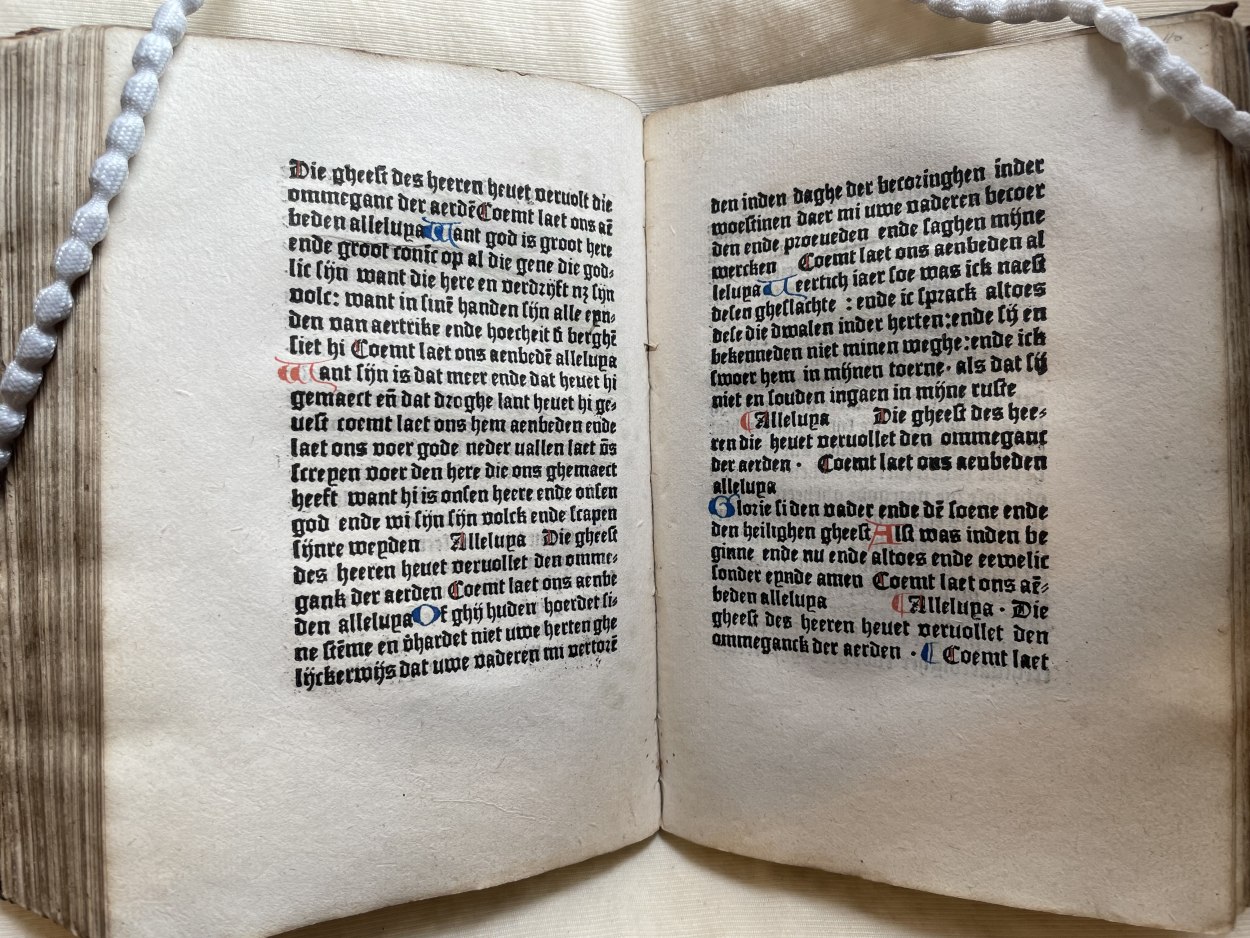 Die gheest des heeren heuet vervolt die
ommeganc der aerdē Coemt laet ons aē
beden alleluya Want god is groot here
ende groot conic op al die gene die god⸗
lic sijn want die here en verdrijft nꝫ sijn
volc: want in sinē handen sijn alle eyn⸗
den van aertrike ende hoecheit ð berghē
siet hi Coemt laet ons aenbedē alleluya
Want sijn is dat meer ende dat heuet hi
gemaect eñ dat droghe lant heuet hi ge⸗
uest coemt laet ons hem aenbeden ende
laet ons voer gode neder uallen laet ōs
screyen voer den here die ons ghemaect
heeft want hi is onsen heere ende onsen
god ende wi sijn sijn volck ende scapen
sijnre weyden Alleluya Die gheest
des heeren heuet vervollet den omme⸗
gank der aerden Coemt laet ons aenbe
den alleluya Of ghij huden hoerdet si⸗
ne stēme en v̄hardet niet uwe herten ghe
lijckerwijs dat uwe vaderen mi vertorē
den inden daghe der becoringhen inder
woestinen daer mi uwe vaderen becoer
den ende proeueden ende saghen mijne
wercken Coemt laet ons aenbeden al
leluya Veertich iaer soe was ick naest
desen gheslachte : ende ic sprack altoes
dese die dwalen inder herten: ende sij en
bekenneden niet minen weghe: ende ick
swoer hem in mijnen toerne· als dat sij
niet en souden ingaen in mijne ruste
⸿ Alleluya Die gheest des hee⸗
ren die heuet vervollet den ommeganc
der aerden · Coemt laet ons aenbeden
alleluya
Glorie si den vader ende dē soene ende
den heilighen gheest Alst was inden be
ginne ende nu ende altoes ende eewelic
sonder eynde amen Coemt laet ons aē⸗
beden alleluya ⸿ Alleluya · Die
gheest des heeren heuet vervollet den
ommeganck der aerden · ⸿ Coemt laet